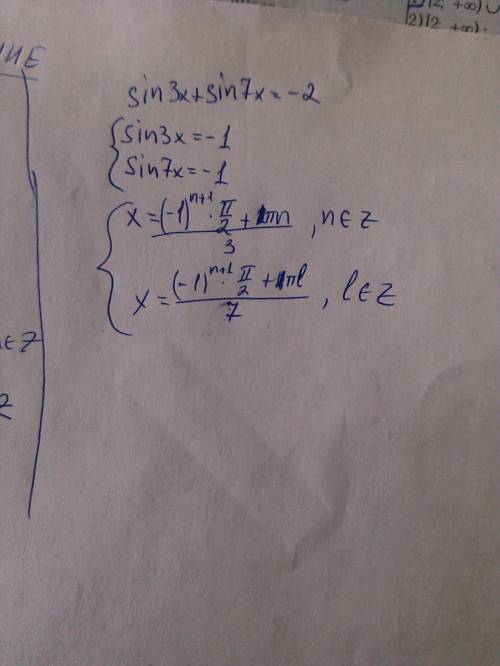 (2; +∞) ∪
2) (2; +∞).
ИЕ
sin3x+sin7x=-2
{sin3x=-1
sin7x=-1
{x=((-1)^{n+1}·π/2+πn)/3, n∈Z
x=((-1)^{n+1}·π/2+πl)/7, l∈Z
∈Z